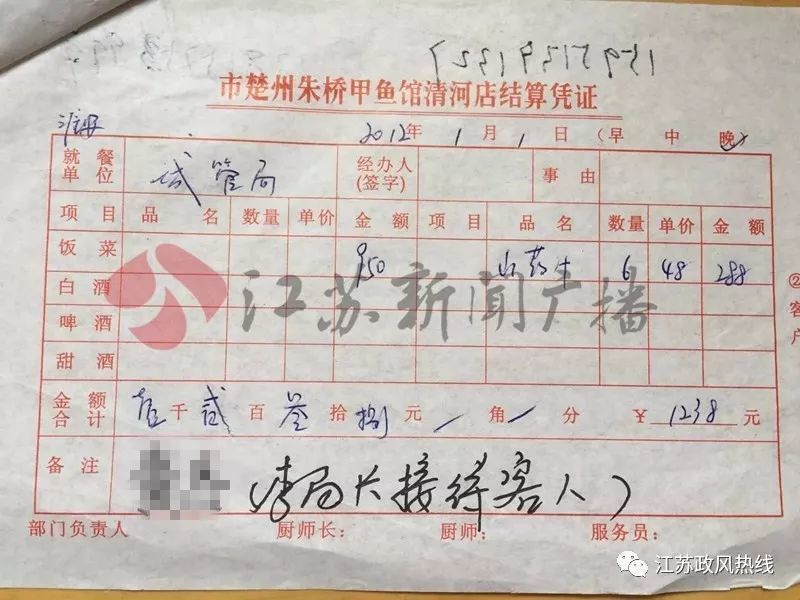 市楚州朱桥甲鱼馆清河店结算凭证
2012年 1月 1日 (早 中 晚)
就餐单位 城管局 经办人(签字) 事由
项目 品名 数量 单价 金额 项目 品名 数量 单价 金额
饭菜 950 山药汁 6 48 288
白酒
啤酒
甜酒
金额合计 壹千贰百叁拾捌元/角/分 ¥1238元
备注 (李局长接待客人)
部门负责人 厨师长: 厨师: 服务员:
②客户
江苏新闻广播
江苏政风热线